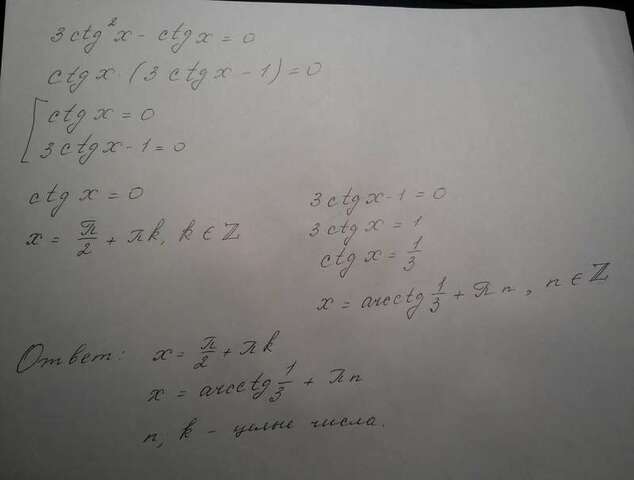 3ctg²x - ctgx = 0
ctgx · (3ctgx - 1) = 0
[ ctgx = 0
3ctgx - 1 = 0
ctgx = 0
x = π/2 + πk, k ∈ ℤ
3ctgx - 1 = 0
3ctgx = 1
ctgx = 1/3
x = arcctg 1/3 + πn, n ∈ ℤ
Ответ: x = π/2 + πk
x = arcctg 1/3 + πn
n, k - целые числа.